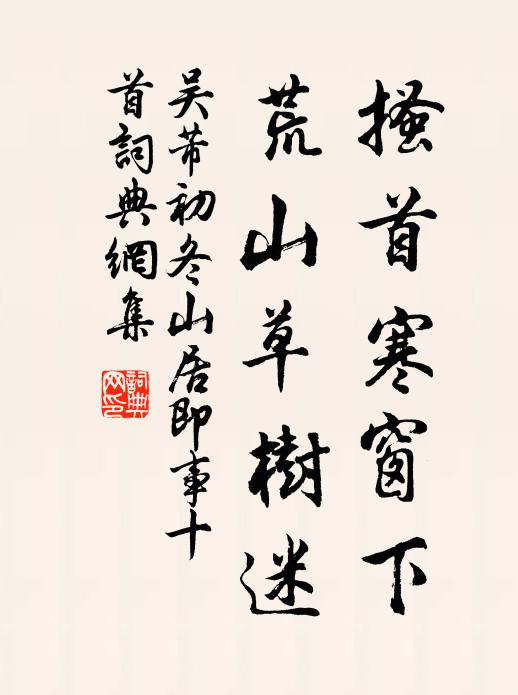 搔首寒窗下
荒山草樹迷
吴芾初冬山居即事十
首詞典網集
詞典
网印